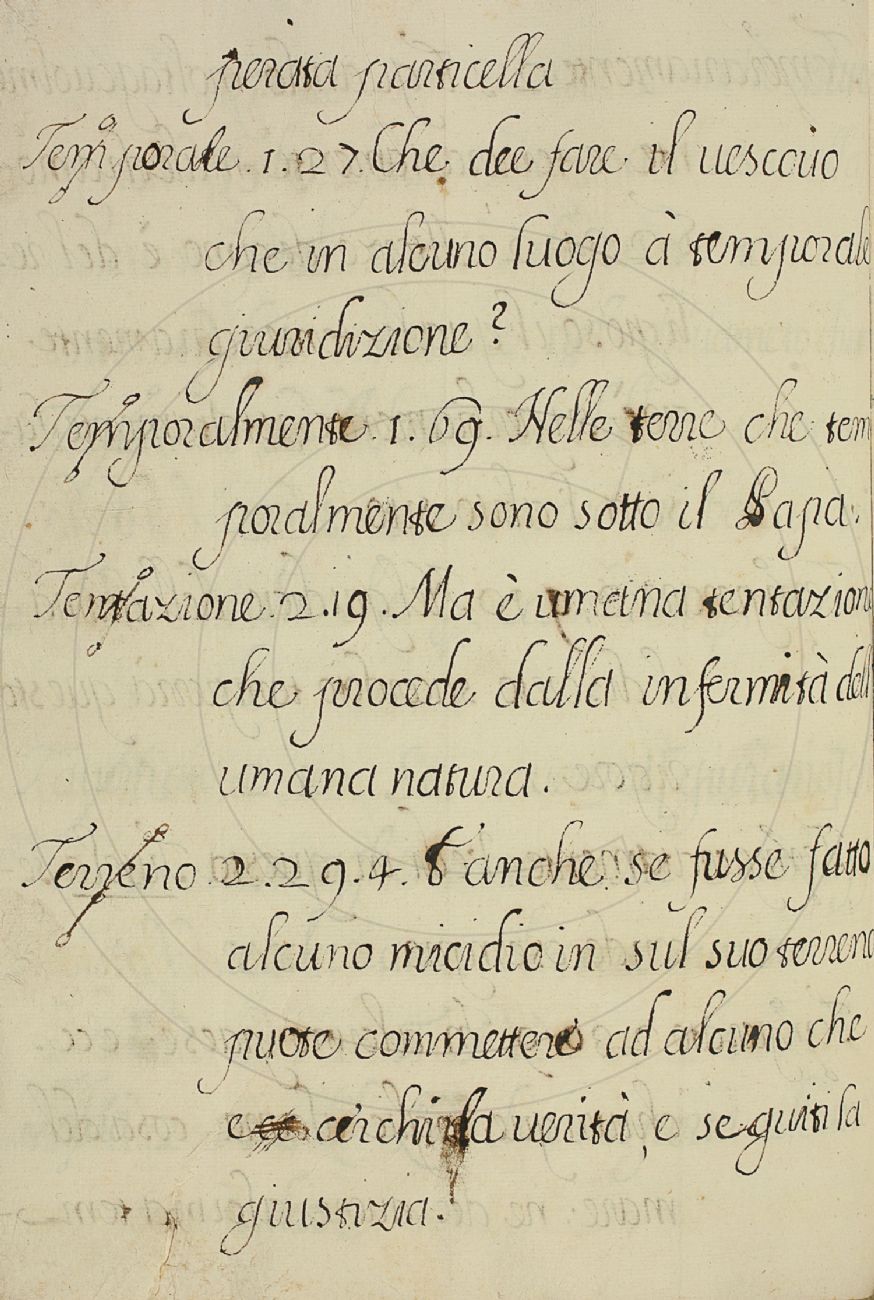 perata particella
Temporale. 1. 27. Che dee fare il uescouo
che in alcuno luogo à temporale
giuridizione?
Temporalmente. 1. 69. Nelle terre che tem
poralmente sono sotto il Papa.
Tentazione. 2. 19. Ma è umana tentazione
che procede dalla infermità dell
umana natura.
Terreno 2. 29. 4. E anche se fusse fatto
alcuno micidio in sul suo terreno
puote commettere ad alcuno che
e cerchi la uerità, e seguiti la
giustizia.